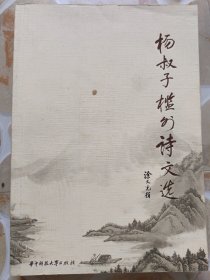 杨叔子槛外诗文选
涂又光辑
华中科技大学出版社